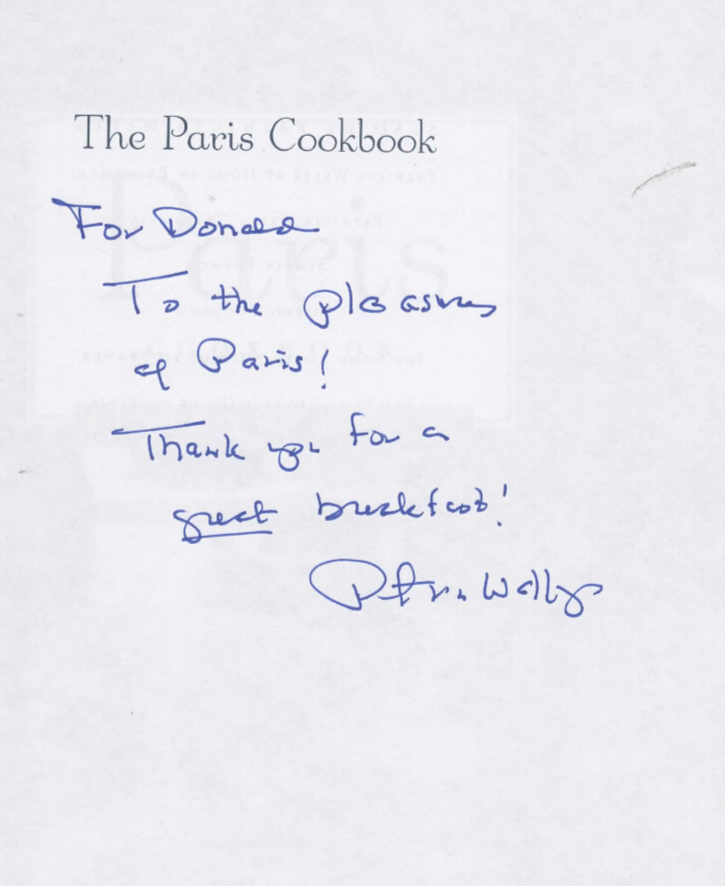 The Paris Cookbook
For Donald
To the pleasures
of Paris!
Thank you for a
great breakfast!
Patricia Wells